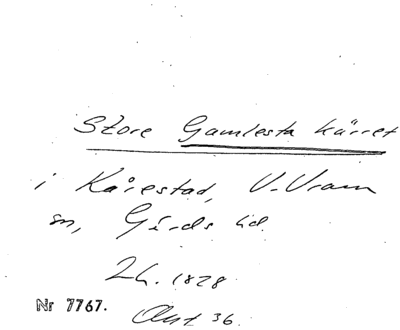 Store Gamlesta kärret
i Kårestad, V. Vram
sn, Gärds hd.
Lh. 1828
Nr 7767.
Akt 36.